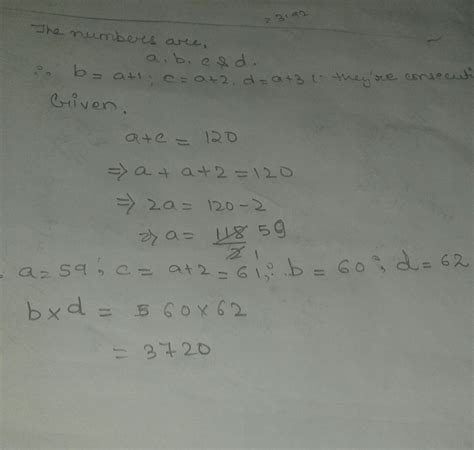 = 3192
The numbers are,
a, b, c & d.
∴ b = a+1; c = a+2, d = a+3 (∵ they're consecuti
Given.
a+c = 120
⇒ a + a + 2 = 120
⇒ 2a = 120-2
⇒ a = 118/2 59 1
a = 59; c = a+2 = 61; ∴ b = 60; d = 62
b×d = 5 60×62
= 3720